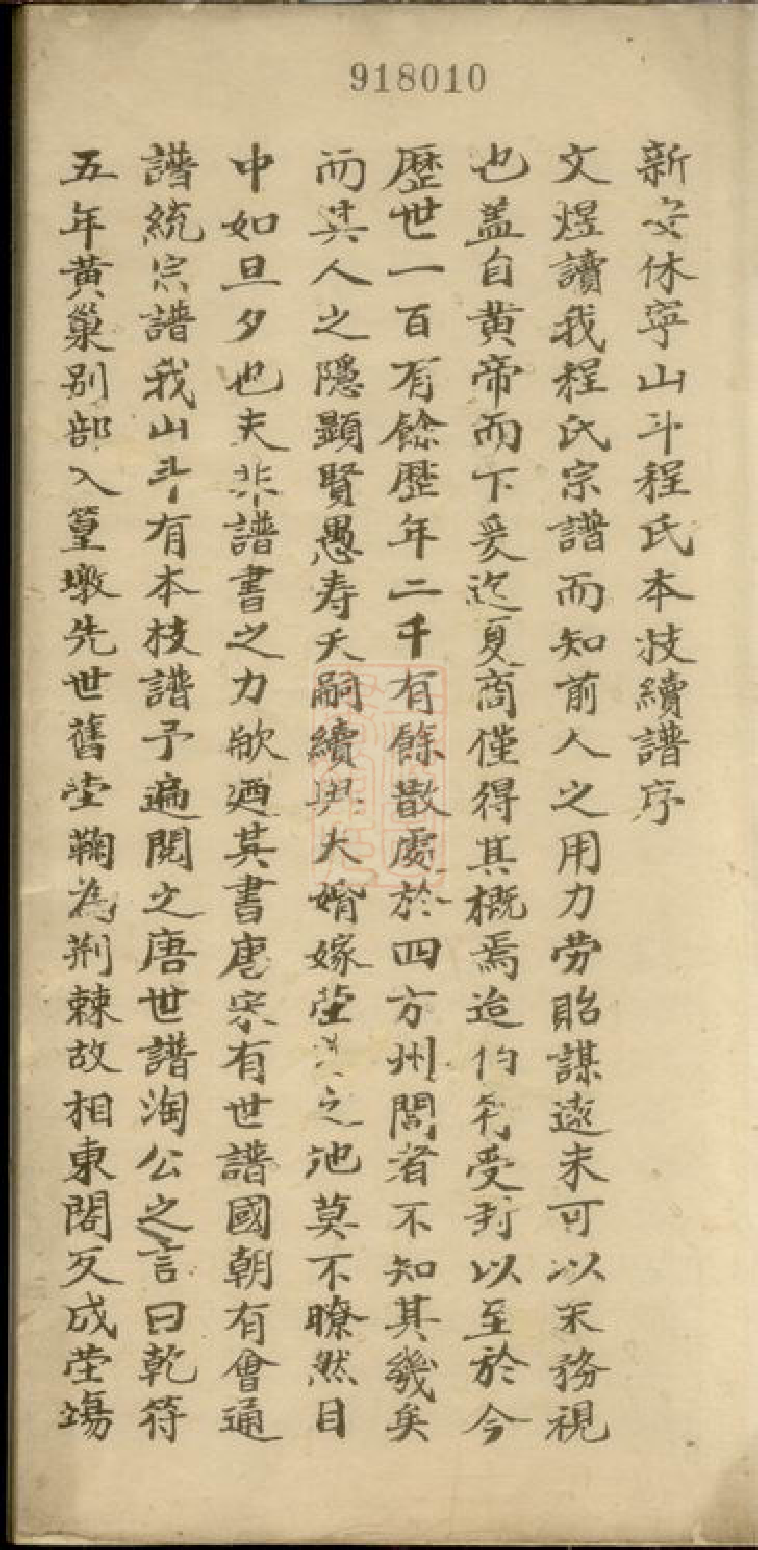 918010
新安休寧山斗程氏本枝續譜序
文煜讀我程氏宗譜而知前人之用力劳貽謀遠未可以末務視
也盖自黄帝而下爰迄夏商僅得其概焉迨伯符受封以至於今
歷世一百有餘歷年二千有餘散處於四方州閭者不知其幾矣
而其人之隱顯賢愚寿夭嗣續與夫婚嫁茔之池莫不瞭然目
中如旦夕也夫非譜書之力欤廼其書唐宋有世譜國朝有會通
譜統宗譜我山斗有本枝譜予遍閱之唐世譜淘公之言曰乾符
五年黄巢别部入篁墩先世舊茔鞠為荆棘故相東閣又成茔塲